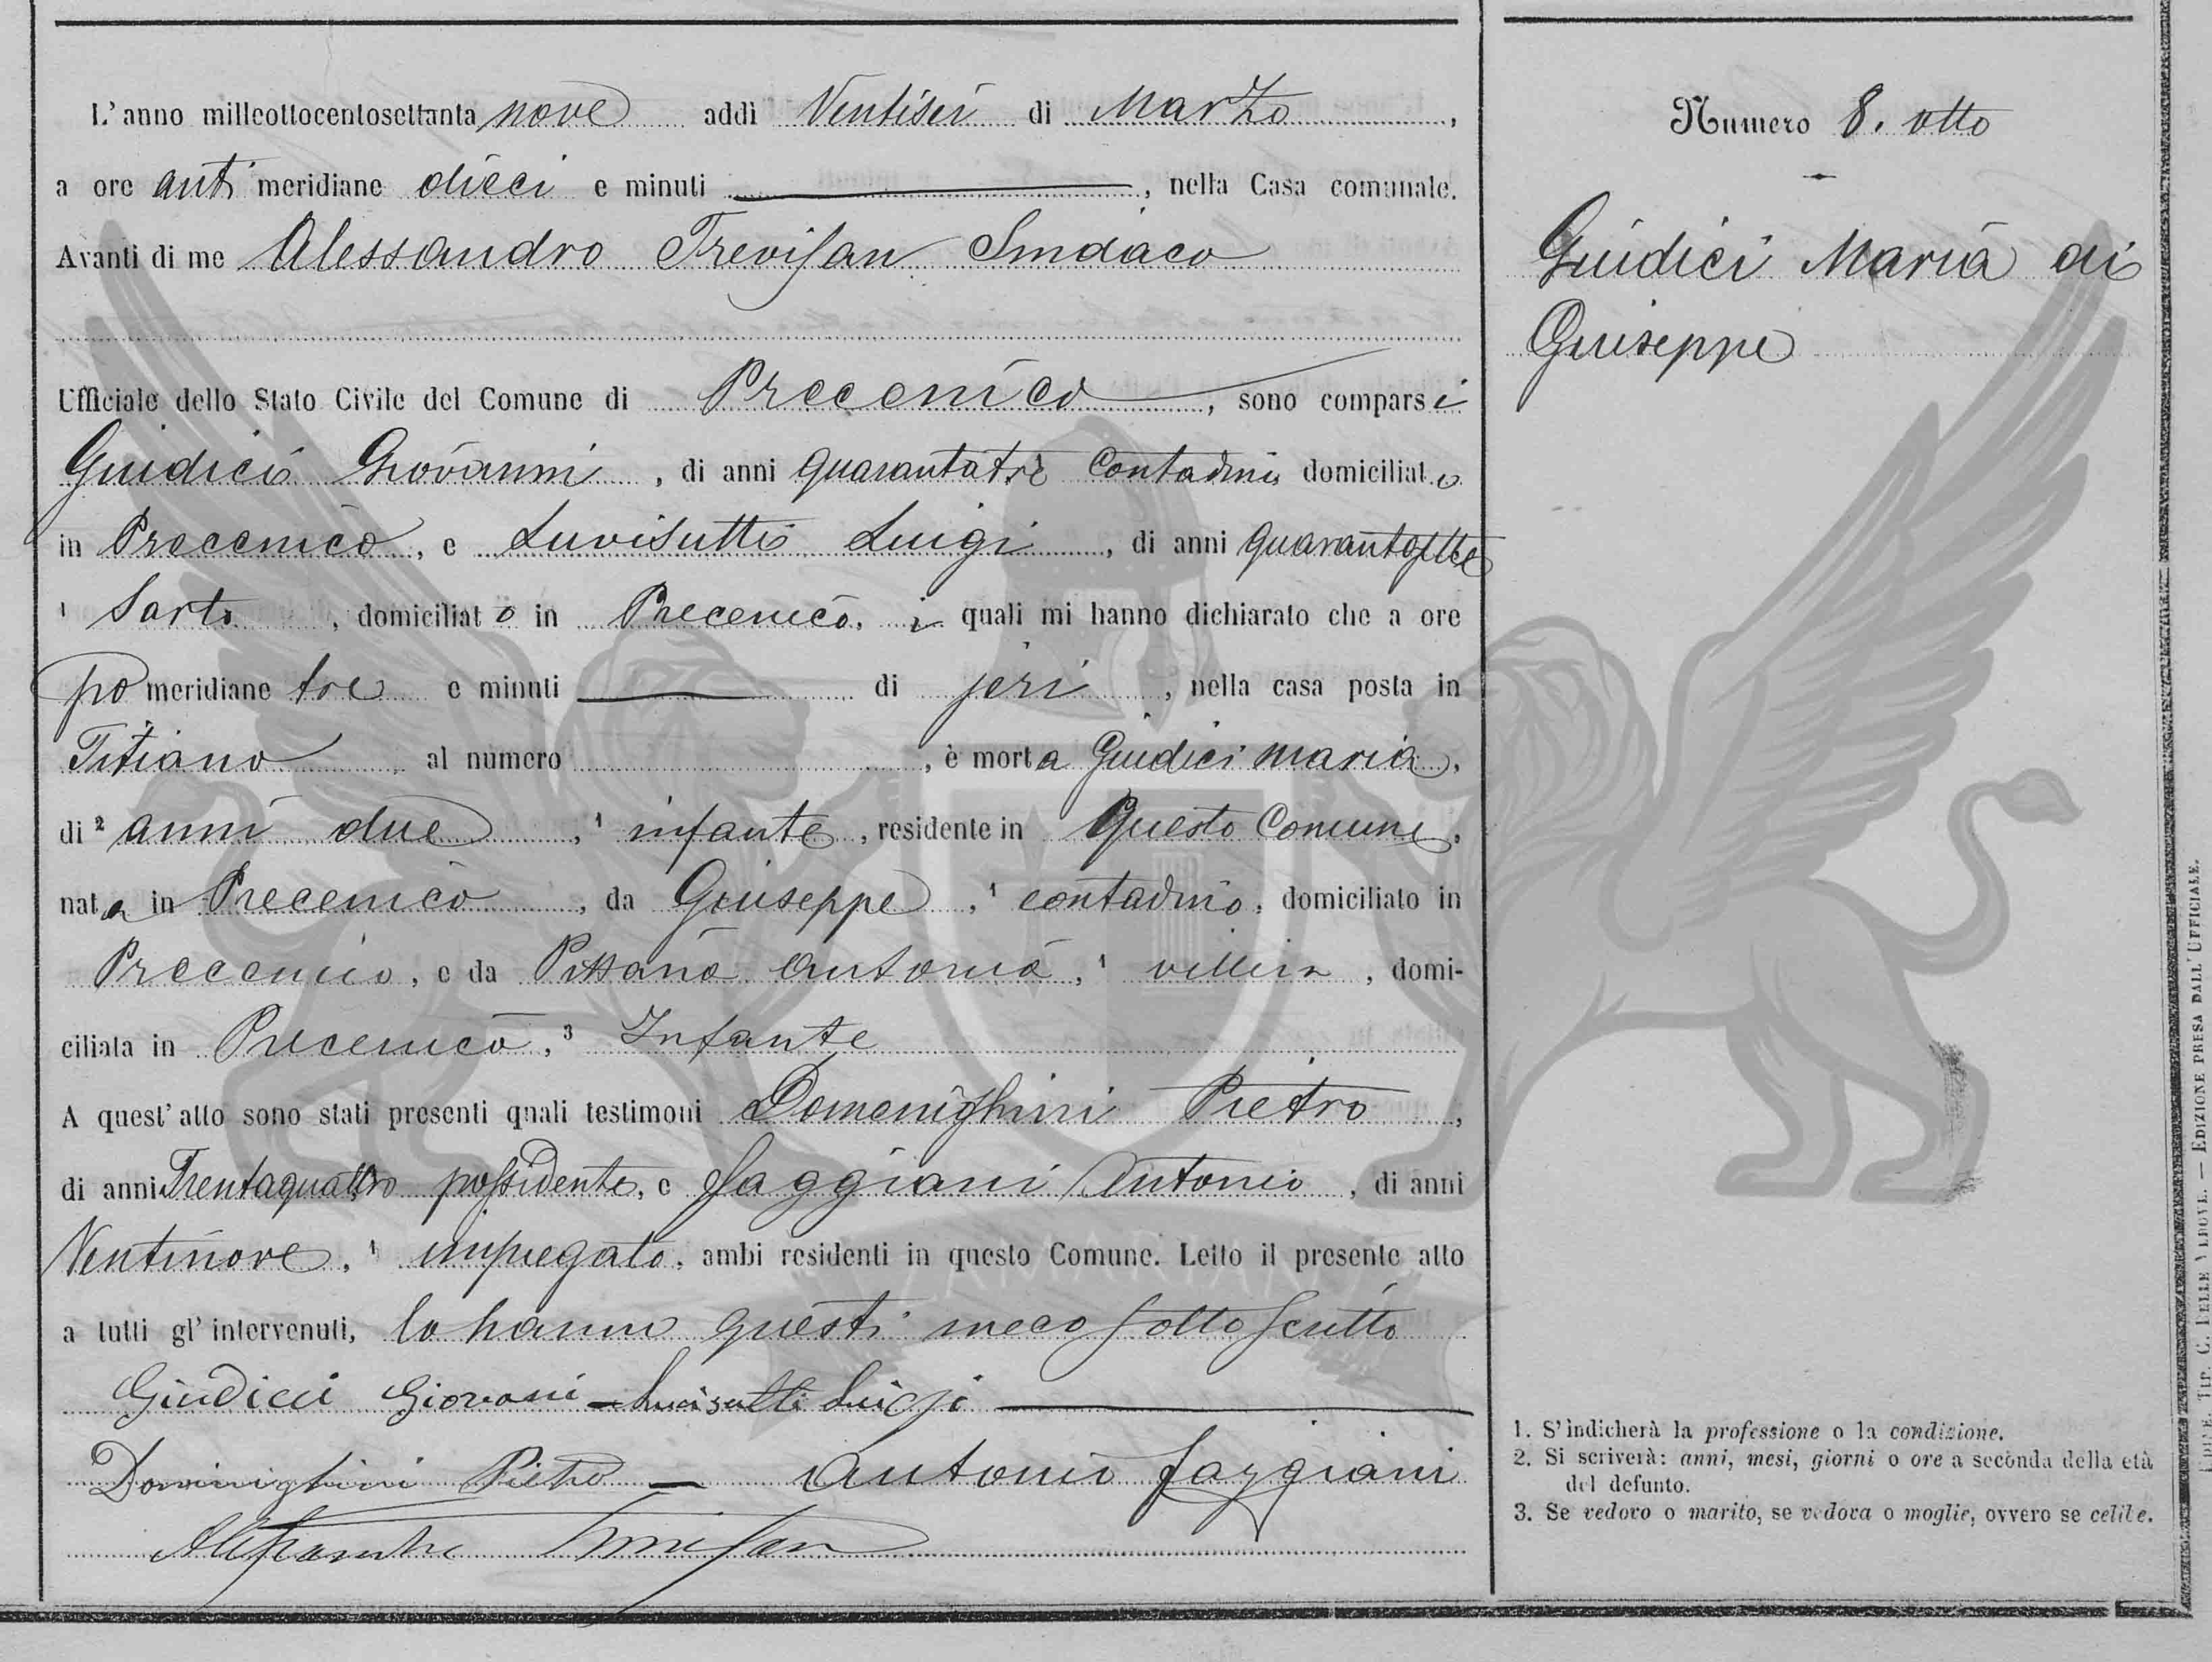 L'anno milleottocentosettanta nove addì Ventisei di Marzo,
a ore anti meridiane dieci e minuti, nella Casa comunale.
Avanti di me Alessandro Trevisan Sindaco
Ufficiale dello Stato Civile del Comune di Precenico, sono comparsi
Guidici Giovanni, di anni quarantatrè contadini domiciliato
in Precenico, e Luvisutti Luigi, di anni
1 Sarto, domiciliato in Precenico, i quali mi hanno dichiarato che a ore
po meridiane tre e minuti di jeri, nella casa posta in
Titiano al numero, è morta Guidici Maria,
di 2 anni due, 1 infante, residente in questo Comune,
nata in Precenico, da Giuseppe, 1 contadino, domiciliato in
Precenico, e da Antonia, 1 villica, domi-
ciliata in Precenico, 3 Infante
A quest'atto sono stati presenti quali testimoni Domenighini Pietro,
di anni Trentaquattro possidente, e Faggiani Antonio, di anni
Ventinove, 1 impiegato, ambi residenti in questo Comune. Letto il presente atto
a tutti gl'intervenuti, lo hanno questi meco sottoscritto
Giudici Giovani - Luvisutti Luigi
Dominighini Pietro - Antonio Faggiani
Alessandro Trevisan
Numero 8. otto
Guidici Maria di
Giuseppe
1. S'indicherà la professione o la condizione.
2. Si scriverà: anni, mesi, giorni o ore a seconda della età
del defunto.
3. Se vedovo o marito, se vedova o moglie, ovvero se celibe.
TIP. C. DELLE VEDOVE. — EDIZIONE PRESA DALL'UFFICIALE.